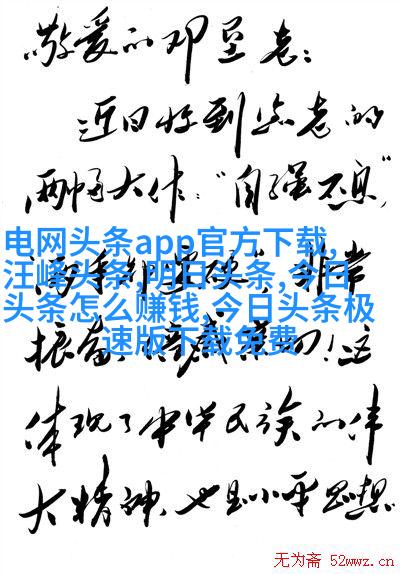 敬爱的邓垦老：
近日收到您老的
两幅大作："自强不息"
电网头条app官方下载,
汪峰头条,明日头条,今日
头条怎么赚钱,今日头条极
速版下载免费
硬"，非常
振奋、感！这
体现了中华民族的伟
大精神，也是小平思想
无为斋 52wwz.cn